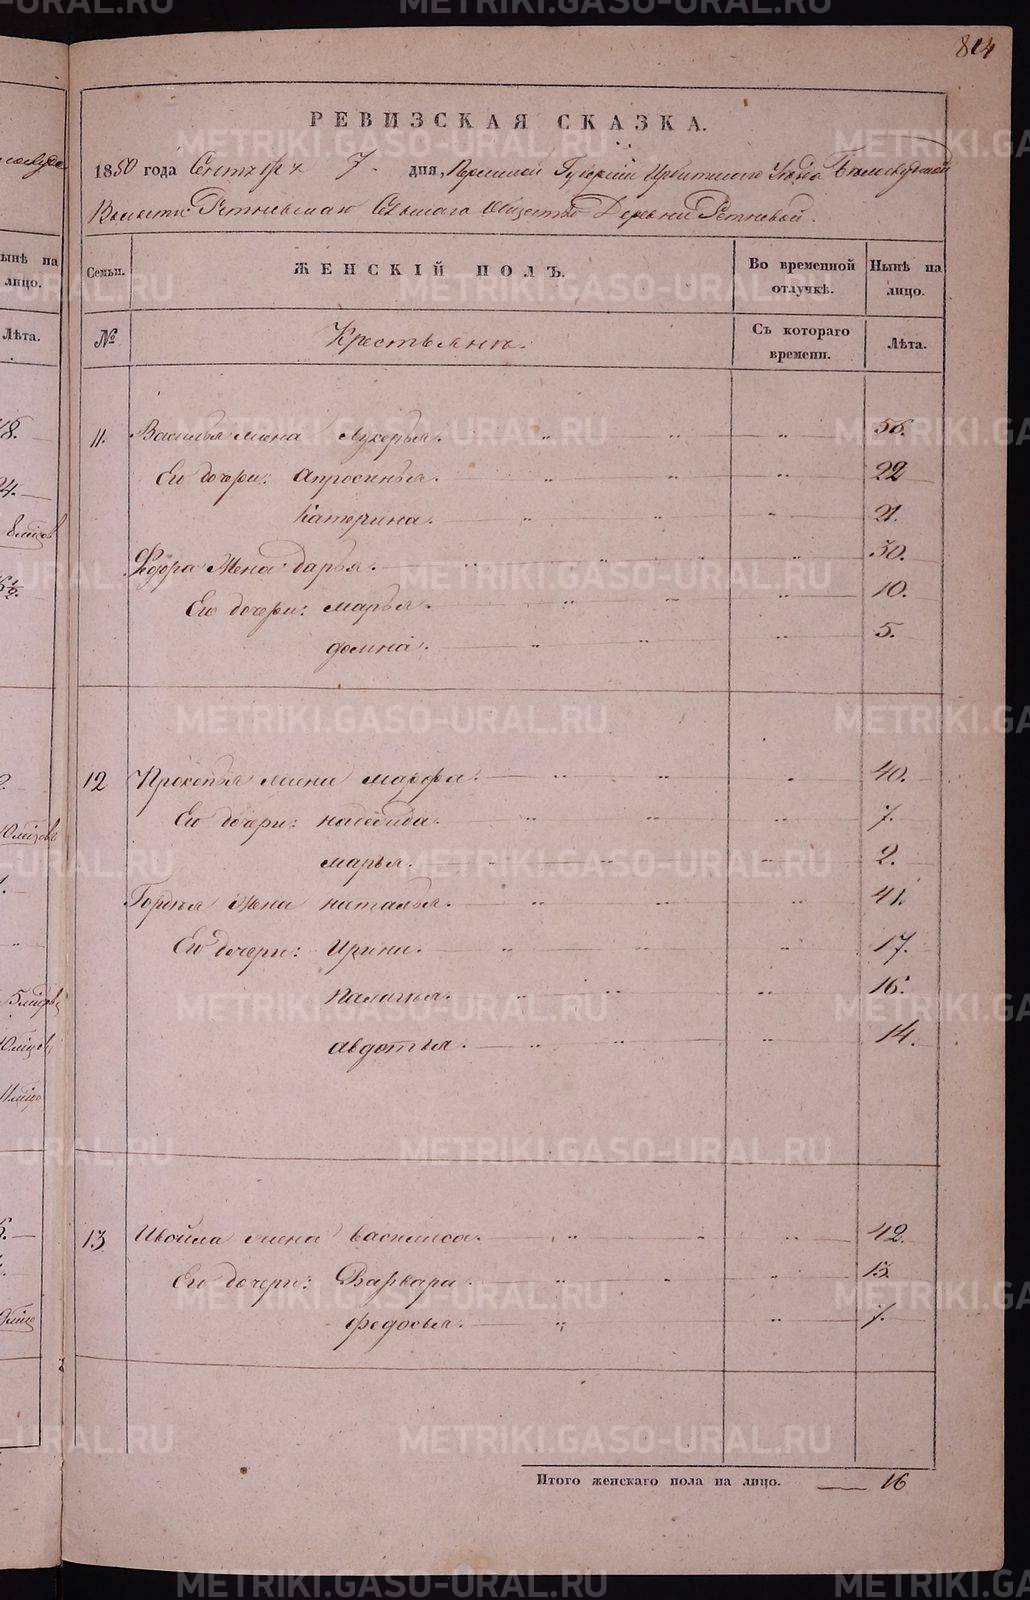 814
РЕВИЗСКАЯ СКАЗКА.
1850 года Сентября 7. дня, Пермской Губернiи Ирбитскаго Уѣзда
Волости Ретневскаго Сельскаго Общества Деревни Ретневой.
Семьи.
ЖЕНСКІЙ ПОЛЪ.
Во временной отлучкѣ.
Нынѣ на лицо.
№
Крестьяне.
Съ котораго времени.
Лѣта.
11. Василья жена Лукерья. 56.
Его дочери: Апросинья. 22
Катерина. 21.
Федора жена Дарья. 30.
Его дочери: Марья. 10.
Домна. 5.
12 Прокопья жена Марфа. 40.
Его дочери: Надежда. 7.
Марья. 2.
Гордѣя жена Наталья. 41.
Его дочери: Ирина. 17.
Палагья. 16.
Авдотья. 14.
13 жена Василиса. 42.
Его дочери: Варвара. 13.
Федосья. 7.
Итого женскаго пола на лицо. 16
METRIKI.GASO-URAL.RU